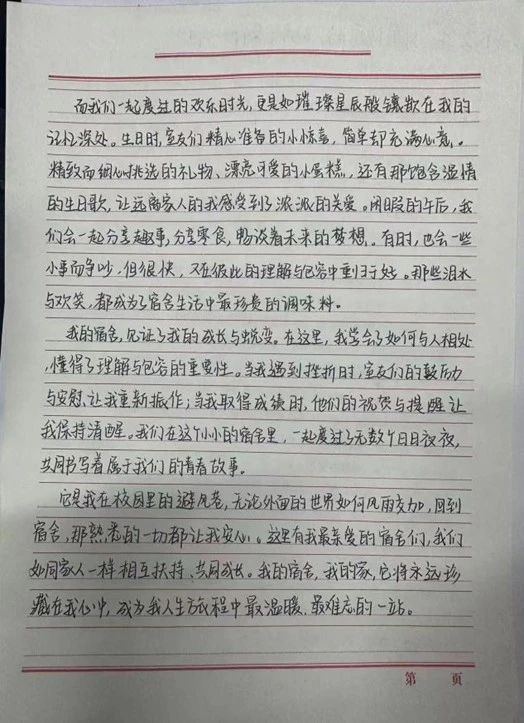 而我们一起度过的欢乐时光，更是如璀璨星辰般镶嵌在我的
记忆深处。生日时，室友们精心准备的小惊喜，简单却充满心意。
精致而细心挑选的礼物、漂亮可爱的小蛋糕，还有那饱含温情
的生日歌，让远离家人的我感受到了浓浓的关爱。闲暇的午后，我
们会一起分享趣事，分享零食，畅谈着未来的梦想。有时，也会一些
小事而争吵，但很快，又在彼此的理解与包容中重归于好。那些泪水
与欢笑，都成为了宿舍生活中最珍贵的调味料。
我的宿舍，见证了我的成长与蜕变。在这里，我学会了如何与人相处
，懂得了理解与包容的重要性。当我遇到挫折时，室友们的鼓励
与安慰让我重新振作；当我取得成绩时，他们的祝贺与提醒让
我保持清醒。我们在这个小小的宿舍里，一起度过了无数个日日夜夜，
共同书写着属于我们的青春故事。
它是我在校园里的避风港，无论外面的世界如何风雨交加，回到
宿舍，那熟悉的一切都让我安心。这里有我最亲爱的宿舍们，我们
如同家人一样相互扶持、共同成长。我的宿舍，我的家，它将永远珍
藏在我心中，成为我人生旅程中最温暖、最难忘的一站。
第 頁